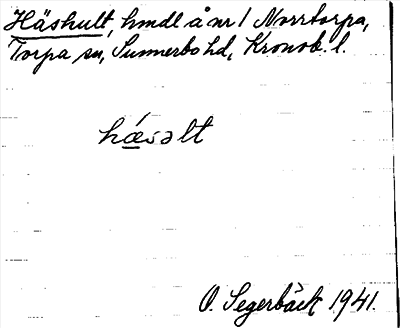 Häshult, hmdl å nr 1 Norrtorpa,
Torpa sn, Sunnerbo hd, Kronob. l.
hǽsəlt
O. Segerbäck 1941.